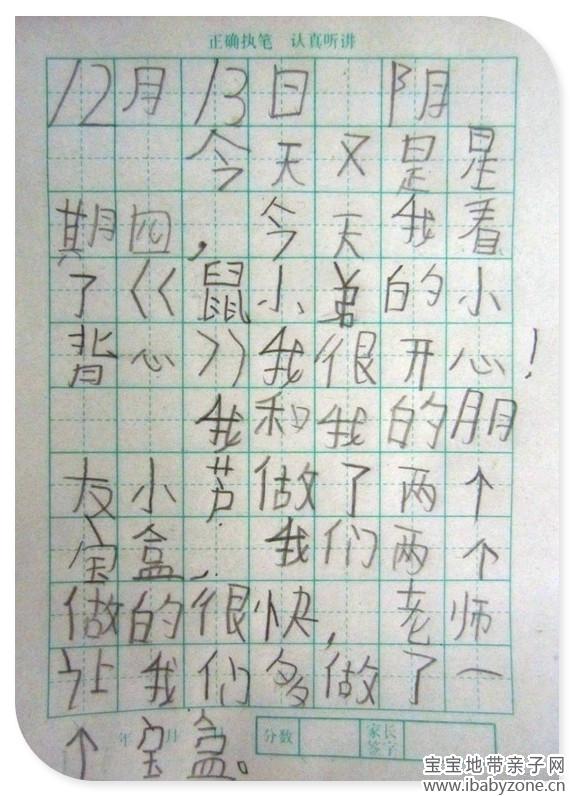 正确执笔 认真听讲
12月13日 阴
今天又是星
期四，今天我看
了《鼠小弟的小
背心》我很开心！
我和我的朋
友小芦做了两个
宝盒，我们两个
做的很快，老师
让我们多做了一
个宝盒。
年 月
分数
家长签字
宝宝地带亲子网
www.ibabyzone.cn